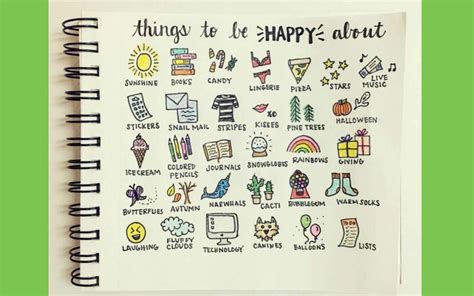 things to be HAPPY about
SUNSHINE BOOKS CANDY LINGERIE PIZZA STARS LIVE MUSIC
STICKERS SNAIL MAIL STRIPES KISSES PINE TREES HALLOWEEN
ICECREAM COLORED PENCILS JOURNALS SNOWGLOBES RAINBOWS GIVING
BUTTERFLIES AUTUMN NARWHALS CACTI BUBBLEGUM WARM SOCKS
LAUGHING FLUFFY CLOUDS TECHNOLOGY CANINES BALLOONS LISTS